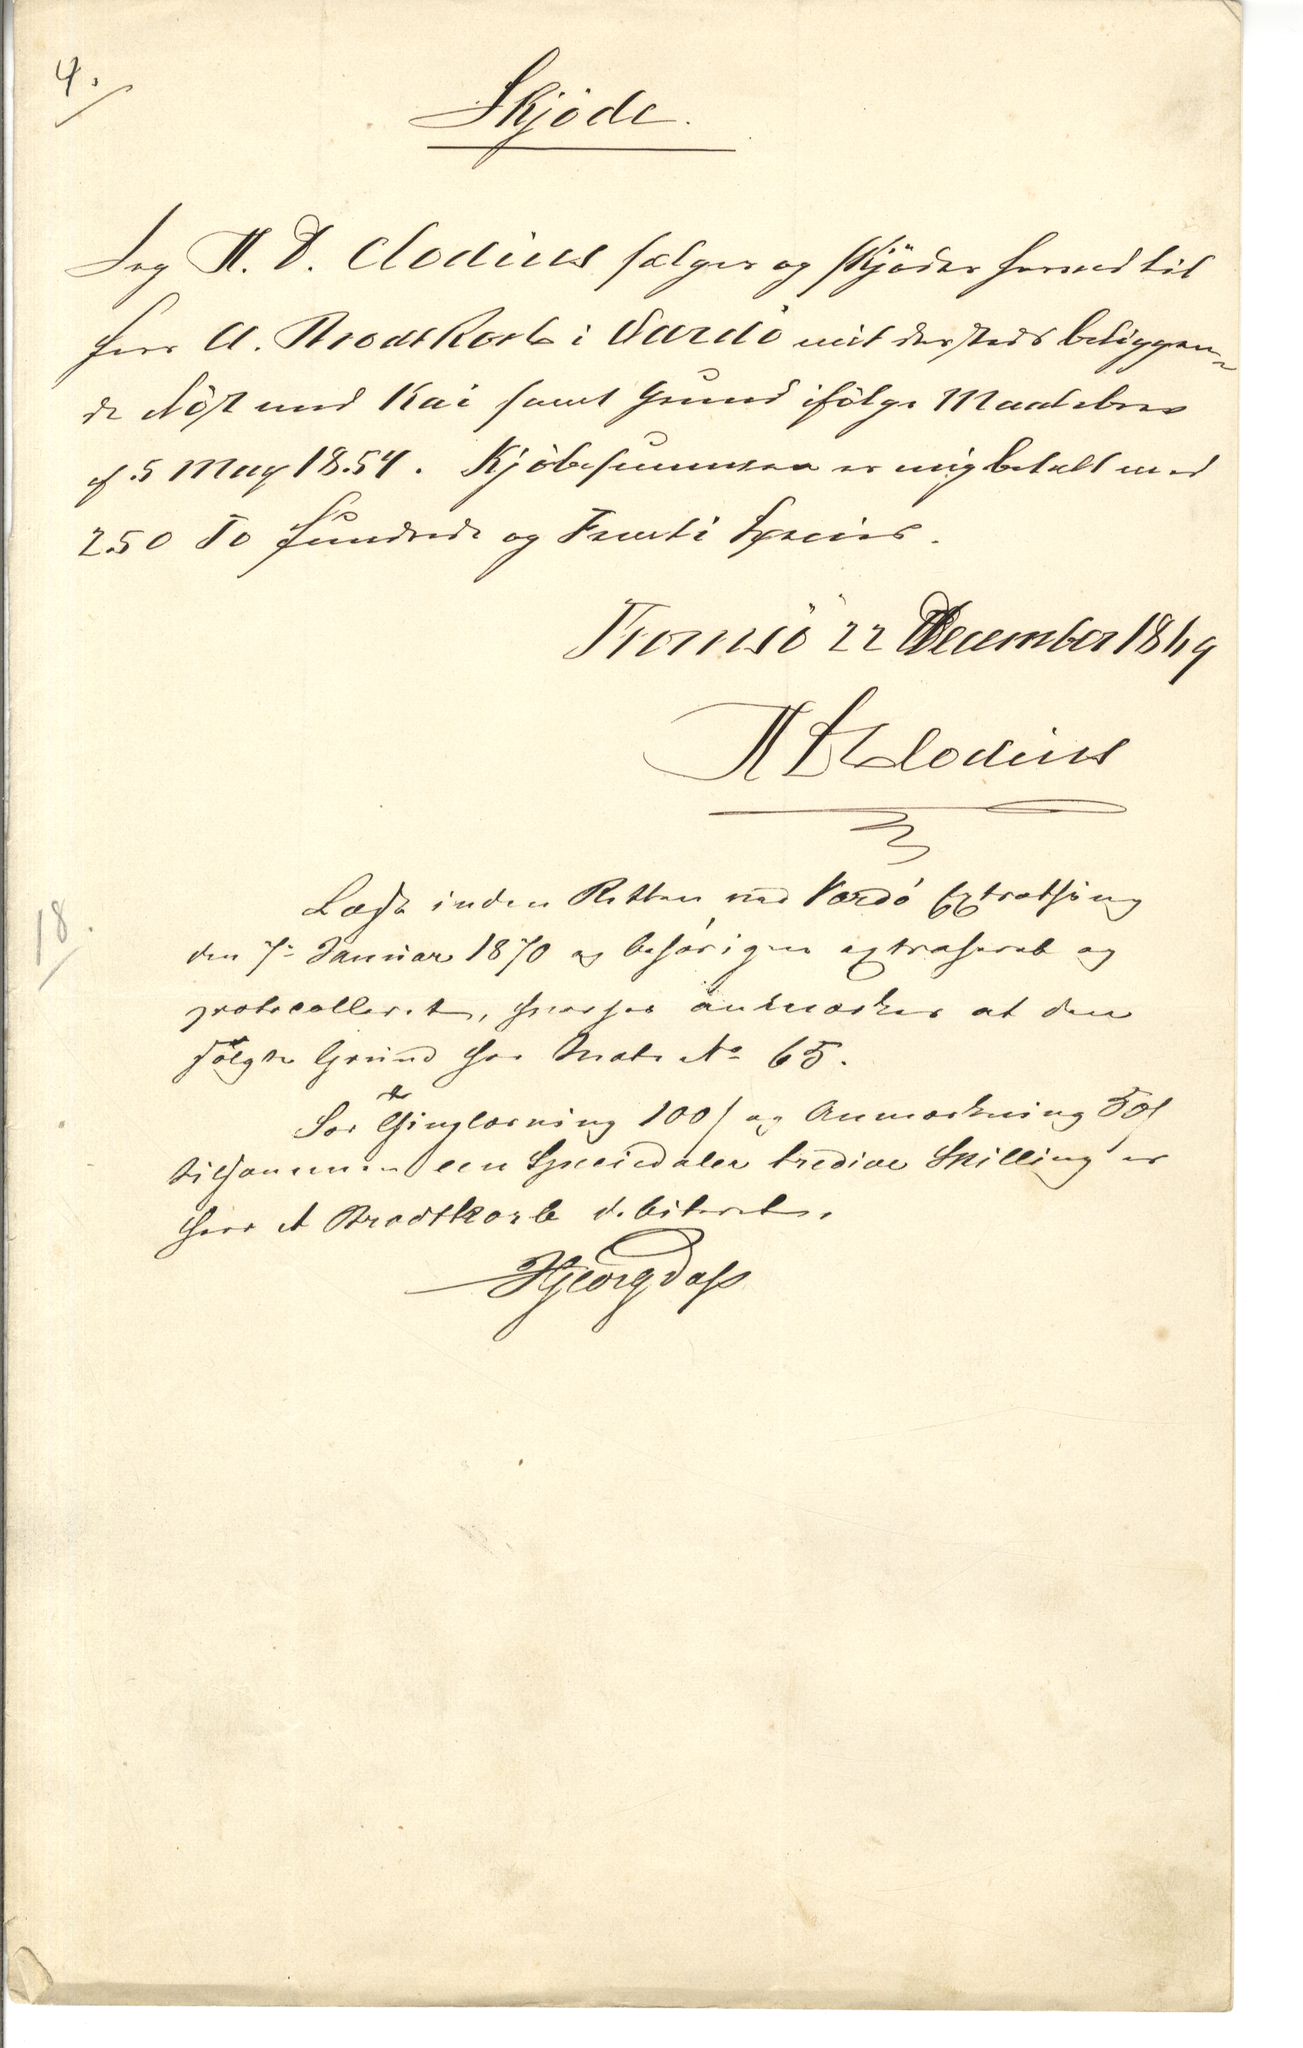 4.
Skjöde.
Jeg M. D. Clodius sælger og skjöder herved til
Herr A. Brodtkorb i Vardö mit dersteds beliggen-
de Nöst med Kai samt Grund ifölge Maalebrev
af 5 May 1854. Kjöbesummen er mig betalt med
250 To Hundrede og Femti Species.
Tromsö 22 December 1869
M D Clodius
18.
Læst inden Retten ved Vardö Extrathing
den 7de Januar 1870 og behörigen extraheret og
protocolleret, hvorhos anmærkes at den
solgte Grund har Matr No 65.
For Thinglæsning 100 s og Anmærkning 50 s
tilsammen een Speciedaler tredive Skilling er
Herr A Brodtkorb debiteret.